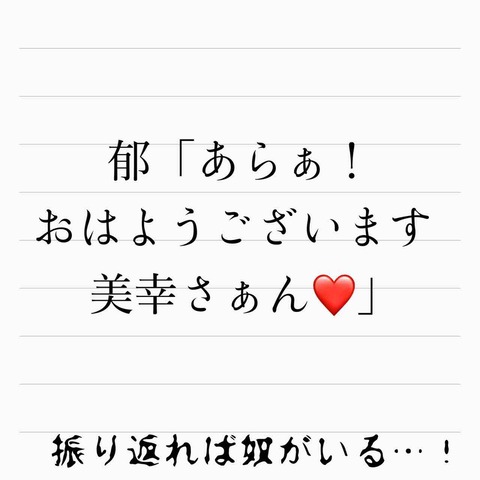 郁「あらぁ！
おはようございます
美幸さぁん❤️」
振り返れば奴がいる…！